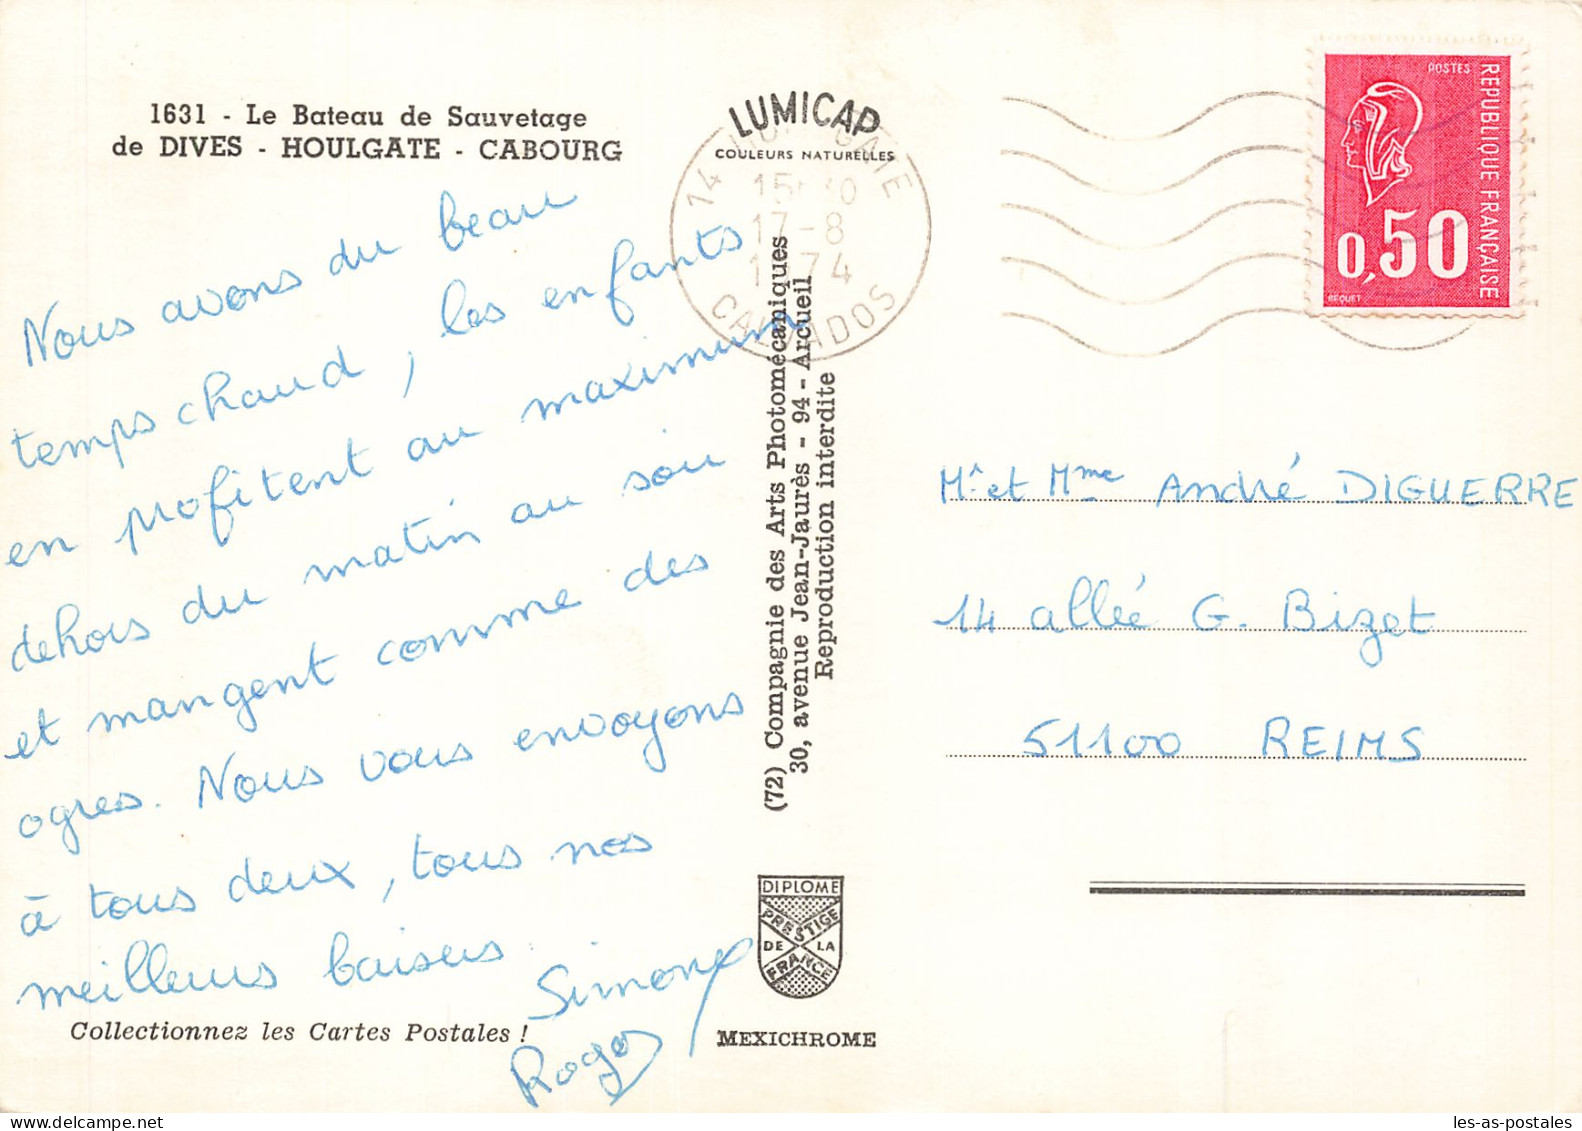 1631 - Le Bateau de Sauvetage
de DIVES - HOULGATE - CABOURG
Nous avons du beau
temps chaud, les enfants
en profitent au maximum
dehors du matin au soir
et mangent comme des
ogres. Nous vous envoyons
à tous deux, tous nos
meilleurs baisers.
Simone
Roger
Collectionnez les Cartes Postales !
LUMICAP
COULEURS NATURELLES
14 HOULGATE
15H30
17-8
1974
CALVADOS
(72) Compagnie des Arts Photomécaniques
30, avenue Jean-Jaurès - 94 - Arcueil
Reproduction interdite
DIPLOME
PRESTIGE
DE LA
FRANCE
MEXICHROME
POSTES
REPUBLIQUE FRANÇAISE
0,50
BEQUET
Mr et Mme André DIGUERRE
14 allée G. Bizet
51100 REIMS
les-as-postales